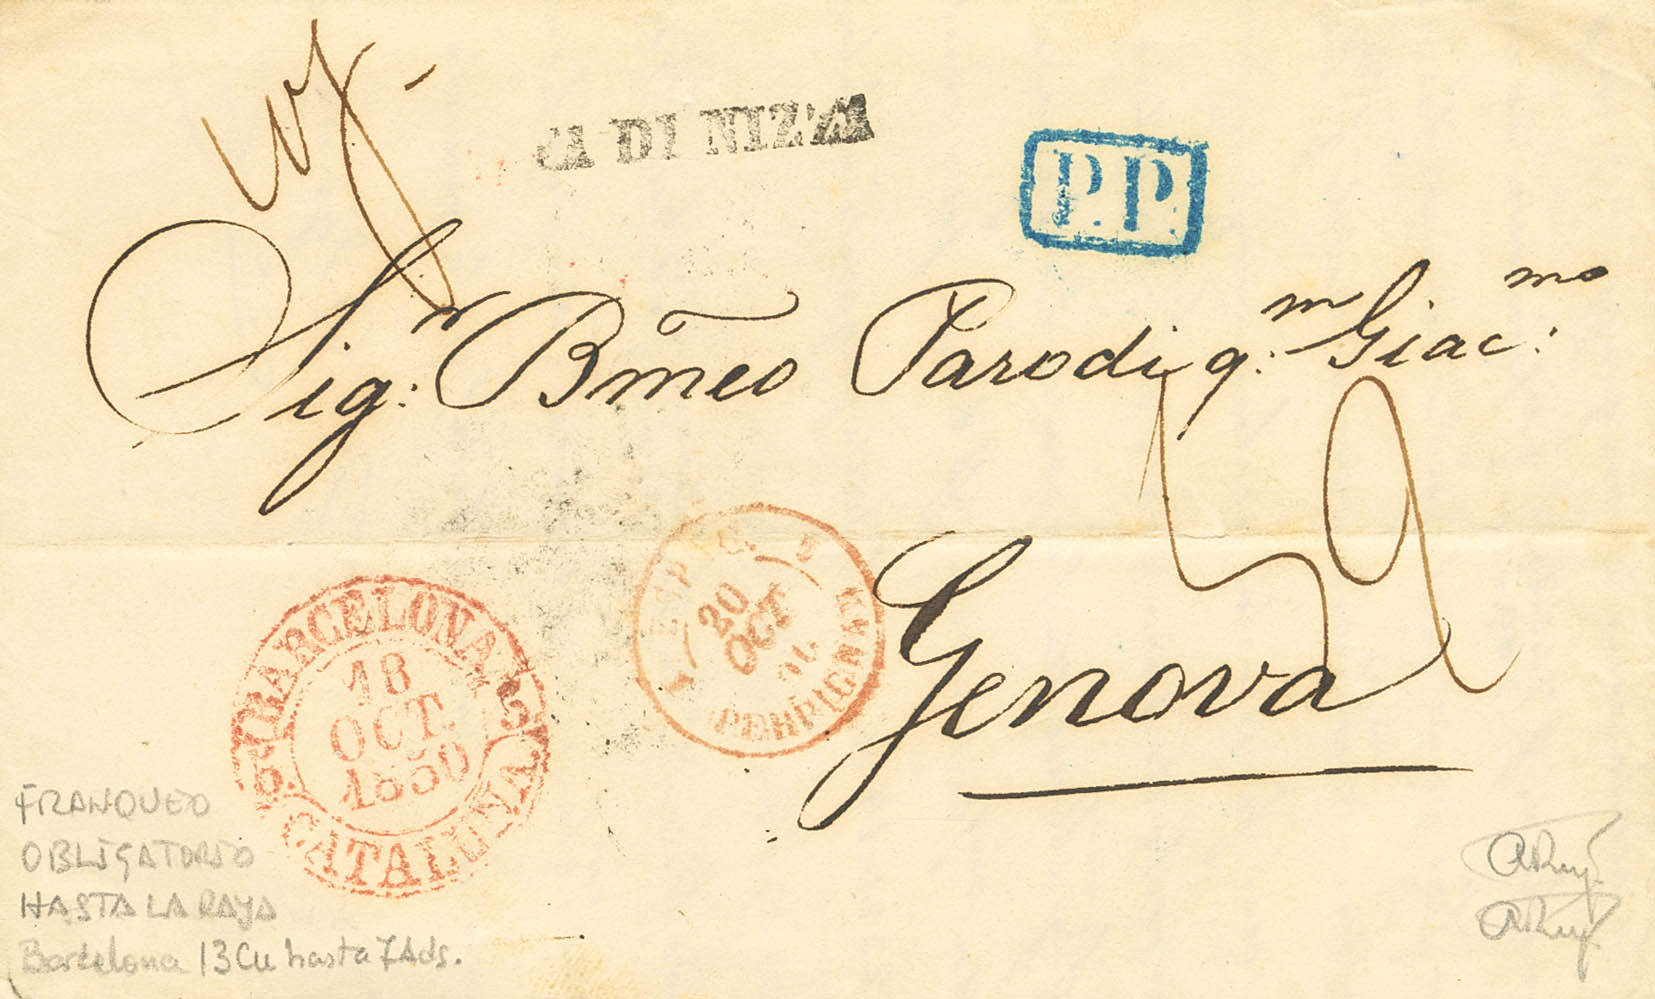 DI NIZZA
P.P.
Sig:r Bmeo Parodi q:m Giac:mo
Genova
BARCELONA
18
OCT.
1850
CATALUÑA
ESP.
5
20
OCT
PERPIGNAN
FRANQUEO
OBLIGATORIO
HASTA LA RAYA
Barcelona 13Cu hasta 7Ads.